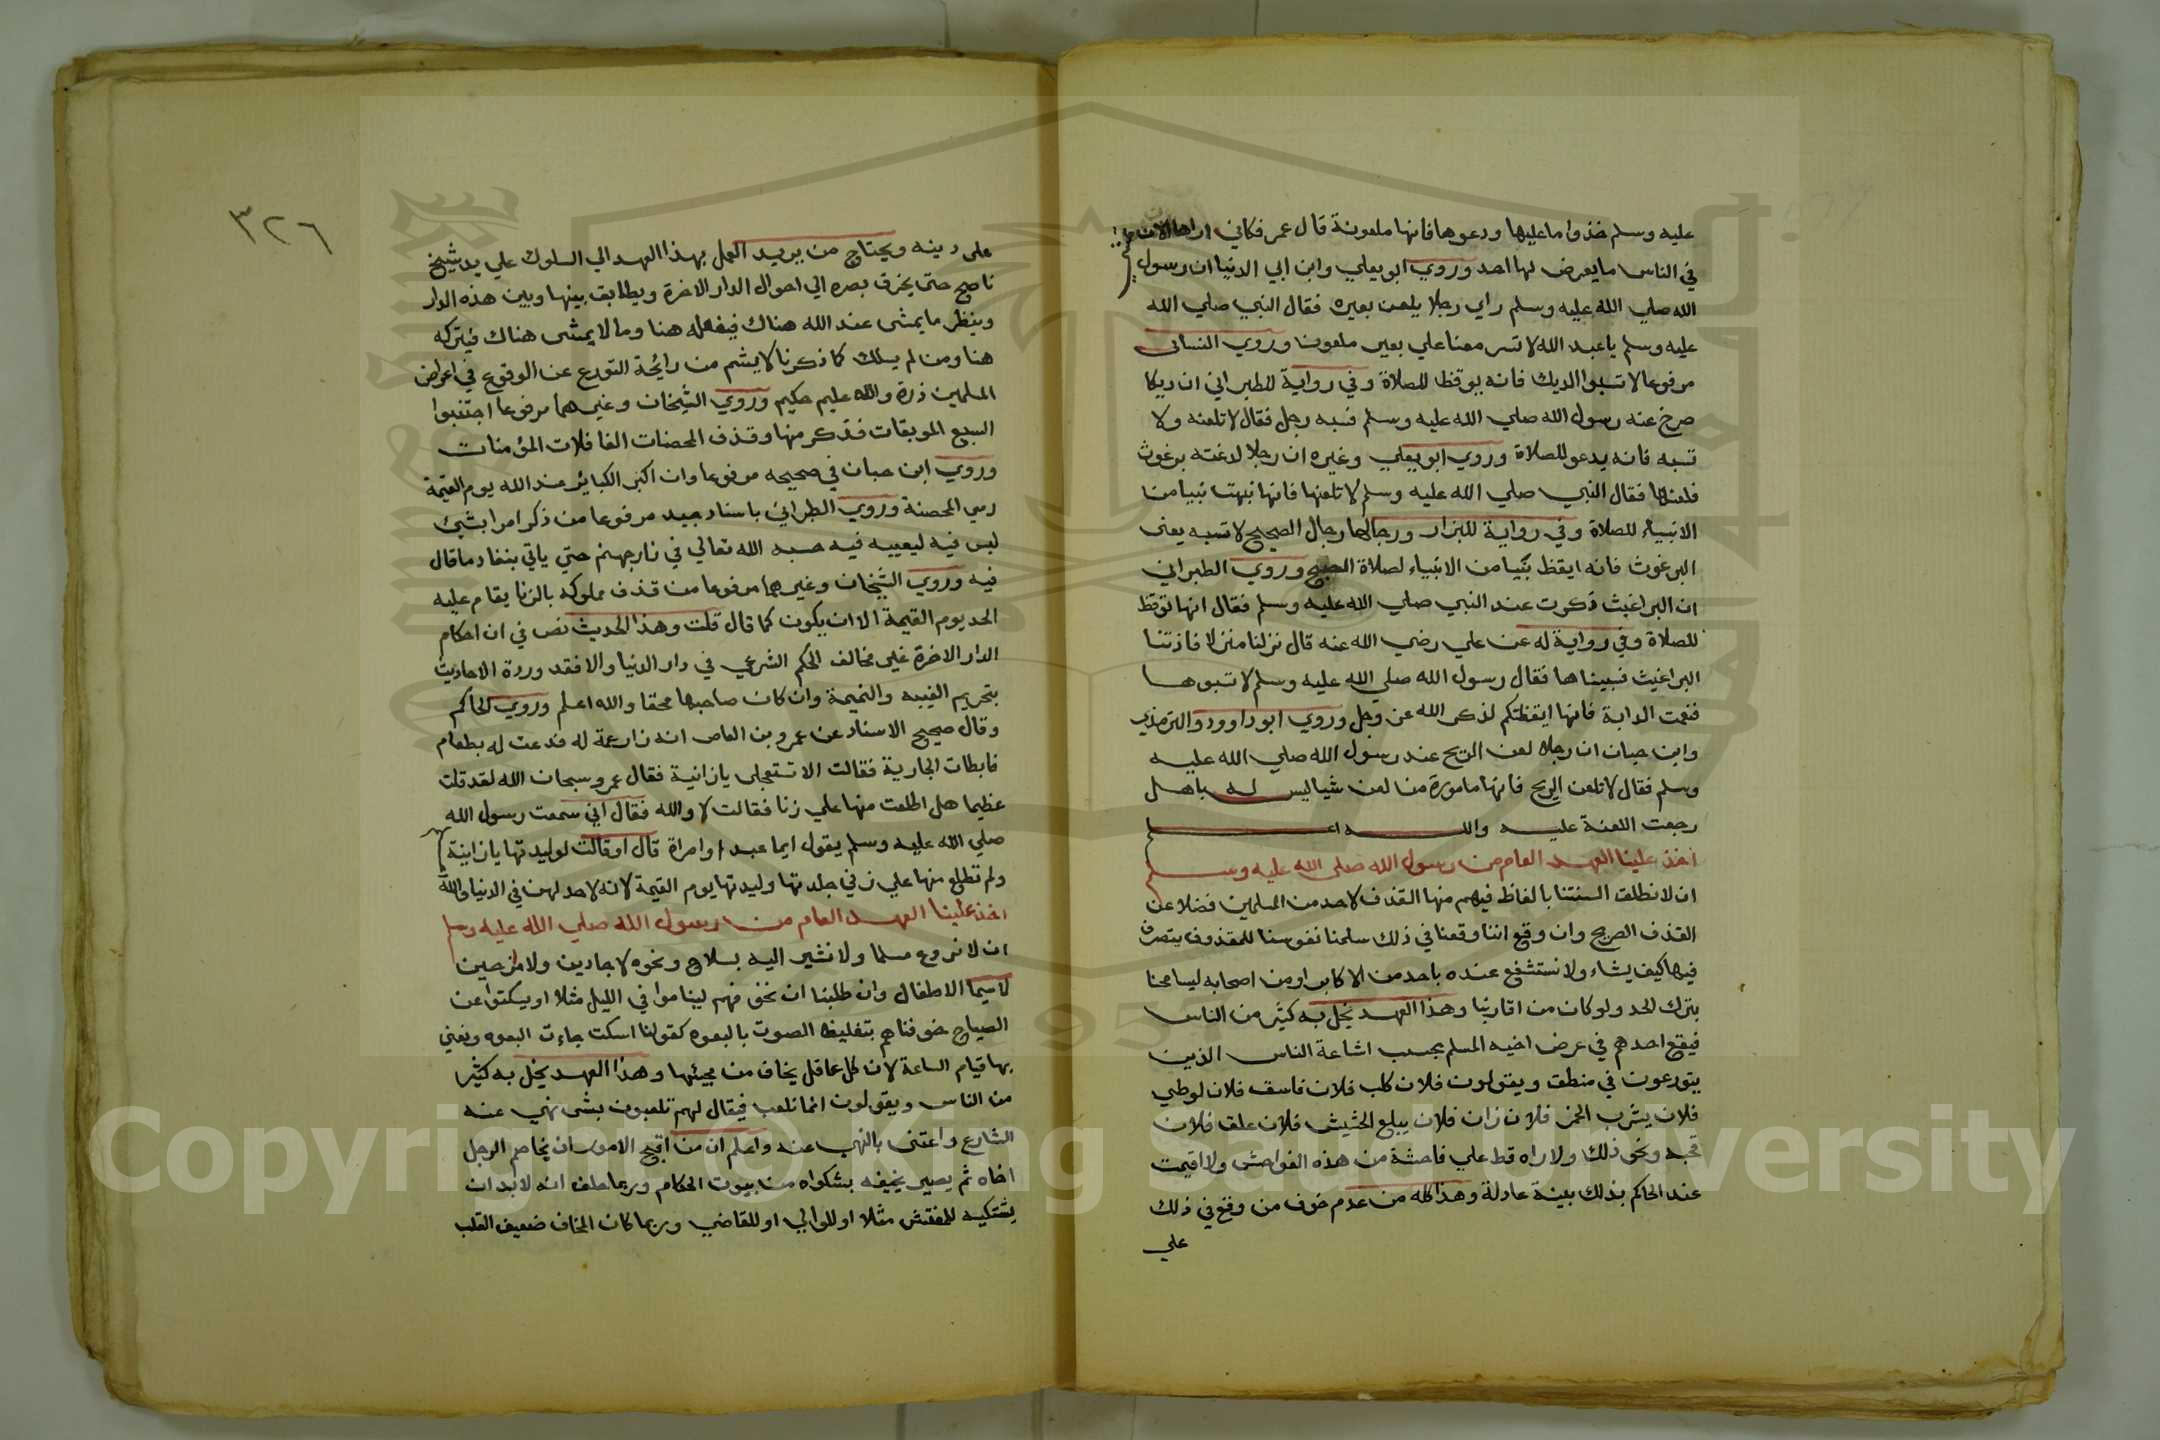 عليه وسلم خذوا ما عليها ودعوها فانها ملعونة قال عمر فكاني اراها الان تمشي
في الناس ما يعرض لها احد وروي ابو يعلي وابن ابي الدنيا ان رسول
الله صلي الله عليه وسلم راي رجلا يلعن بعيره فقال النبي صلي الله
عليه وسلم يا عبد الله لا تسر معنا علي بعير ملعون وروي النساني
مرفوعا لا تسبوا الديك فانه يوقظ للصلاة وفي رواية للطبراني ان ديكا
صرخ عند رسول الله صلي الله عليه وسلم فسبه رجل فقال لا تلعنه ولا
تسبه فانه يدعو للصلاة وروي ابو يعلي وغيره ان رجلا لدغته برغوث
فلعنها فقال النبي صلي الله عليه وسلم لا تلعنها فانها نبهت نبيا من
الانبياء للصلاة وفي رواية للبزار ورجالها رجال الصحيح لا تسبه يعني
البرغوث فانه ايقظ نبيا من الانبياء لصلاة الصبح وروي الطبراني
ان البراغيث ذكرت عند النبي صلي الله عليه وسلم فقال انها توقظ
للصلاة وفي رواية له عن علي رضي الله عنه قال نزلنا منزلا فاذتنا
البراغيث فسبيناها فقال رسول الله صلي الله عليه وسلم لا تسبوها
فنعمت الدابة فانها ايقظتكم لذكر الله عز وجل وروي ابو داوود والترمذي
وابن حبان ان رجلا لعن الريح عند رسول الله صلي الله عليه
وسلم فقال لا تلعن الريح فانها مامورة من لعن شيا ليس له باهل
رجعت اللعنة عليه والله اعلم
اخذ علينا العهد العام من رسول الله صلي الله عليه وسلم
ان لا نطلق السنتنا بالفاظ فيهم منها القذف لاحد من المسلمين فضلا عن
القذف الصريح وان وقع اننا وقعنا في ذلك سلمنا نفوسنا للمقذوف يتصرف
فيها كيف يشاء ولا نستشفع عنده باحد من الاكابر او من اصحابه ليسامحنا
بترك الحد ولو كان من اقاربنا وهذا العهد يخل به كثير من الناس
فيقع احدهم في عرض اخيه المسلم بحسب اشاعة الناس الذين
يتورعون في منطق ويقولون فلان كلب فلان فاسق فلان لوطي
فلان يشرب الخمر فلان زان فلان يبلع الحشيش فلان علق فلان
قحبه ونحو ذلك ولا راه قط علي فاحشة من هذه الفواحش ولا اقيمت
عند الحاكم بذلك بينة عادلة وهذا كله من عدم خوف من وقع في ذلك
علي
٣٢٦
علي دينه ويحتاج من يريد العمل بهذا العهد الي السلوك علي يد شيخ
ناصح حتي يخرق بصره الي احوال الدار الاخرة ويطابق بينها وبين هذه الدار
وينظر ما يمشى عند الله هناك فيفعله هنا وما لا يمشى هناك فيتركه
هنا ومن لم يسلك كما ذكرنا لا يشم من رائحة التورع عن الوقوع في اعراض
المسلمين ذرة والله عليم حكيم وروي الشيخان وغيرهما مرفوعا اجتنبوا
السبع الموبقات فذكر منها وقذف المحصنات الغافلات المؤمنات
وروي ابن حبان في صحيحه مرفوعا وان اكبر الكبائر عند الله يوم القيمة
رمي المحصنة وروي الطبراني باسناد جيد مرفوعا من ذكر امرا بشي
ليس فيه ليعيبه فيه حبسه الله تعالي في نار جهنم حتي ياتي بنفاد ما قال
فيه وروي الشيخان وغيرهما مرفوعا من قذف مملوكه بالزنا يقام عليه
الحد يوم القيمة الا ان يكون كما قال قلت وهذا الحديث نص في ان احكام
الدار الاخرة غير مخالف الحكم الشرعي في دار الدنيا والا فقد وردة الاحاديث
بتحريم الغيبه والنميمة وان كان صاحبها محقا والله اعلم وروي الحاكم
وقال صحيح الاسناد عن عمرو بن العاص انه زار عمة له فدعت له بطعام
فابطات الجارية فقالت الا تستعجلي يا زانية فقال عمرو سبحان الله لقد قلت
عظيما هل اطلعت منها علي زنا فقالت لا والله فقال اني سمعت رسول الله
صلي الله عليه وسلم يقول ايما عبد او امراة قال او قالت لوليدتها يا زانية
ولم تطلع منها علي زني جلدتها وليدتها يوم القيمة لانه لا حد لهن في الدنيا والله
اخذ علينا العهد العام من رسول الله صلي الله عليه وسلم
ان لا نروع مسلما ولا نشير اليه بسلاح ونحوه لا جادين ولا مازحين
لاسيما الاطفال وان طلبنا ان نخوفهم ليناموا في الليل مثلا او يسكتوا عن
الصياح خوفناهم بتغليظ الصوت بالبعوه كقولنا اسكت جاءت البعوه ونعني
بها قيام الساعة لان كل عاقل يخاف من مجيئها وهذا العهد يخل به كثيرا
من الناس ويقولون انما نلعب فيقال لهم تلعبون بشي نهي عنه
الشارع واعتني بالنهي عنه واعلم ان من اقبح الامور ان يخاصم الرجل
اخاه ثم يصير يخيفه بشكواه من بيوت الحكام وربما حلف انه لا بد ان
يشتكيه للمفتش مثلا او للوالي او للقاضي وربما كان المخاف ضعيف القلب
Copyright © King Saud University